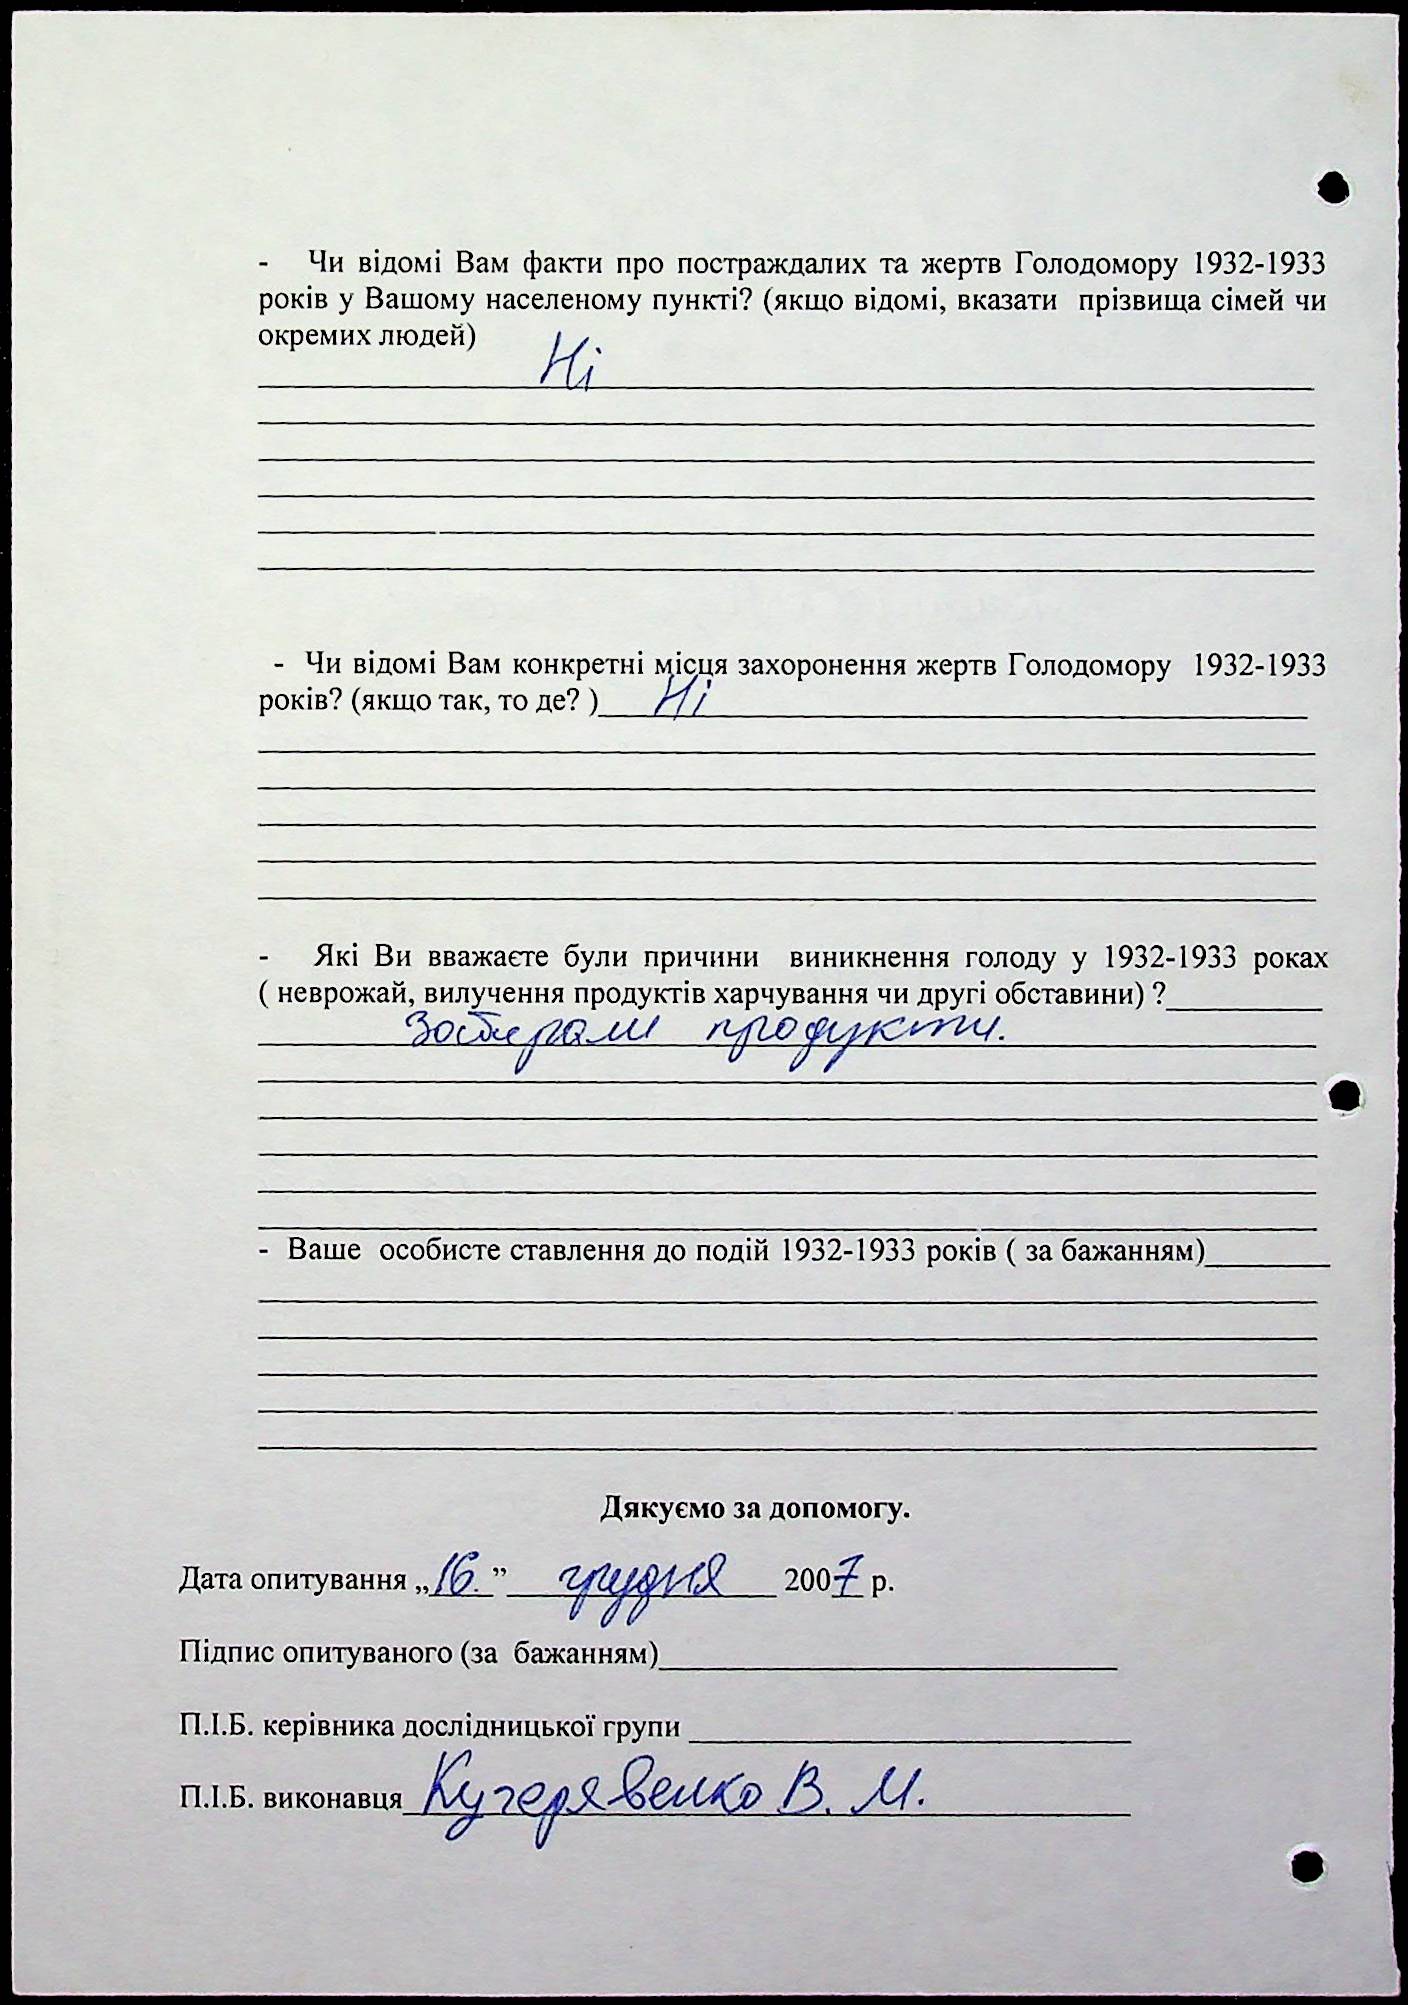 - Чи відомі Вам факти про постраждалих та жертв Голодомору 1932-1933
років у Вашому населеному пункті? (якщо відомі, вказати прізвища сімей чи
окремих людей)
Ні
- Чи відомі Вам конкретні місця захоронення жертв Голодомору 1932-1933
років? (якщо так, то де? ) Ні
- Які Ви вважаєте були причини виникнення голоду у 1932-1933 роках
( неврожай, вилучення продуктів харчування чи другі обставини) ?
Забирали продукти.
- Ваше особисте ставлення до подій 1932-1933 років ( за бажанням)
Дякуємо за допомогу.
Дата опитування „16.” грудня 2007 р.
Підпис опитуваного (за бажанням)
П.І.Б. керівника дослідницької групи
П.І.Б. виконавця Кучерявенко В. М.